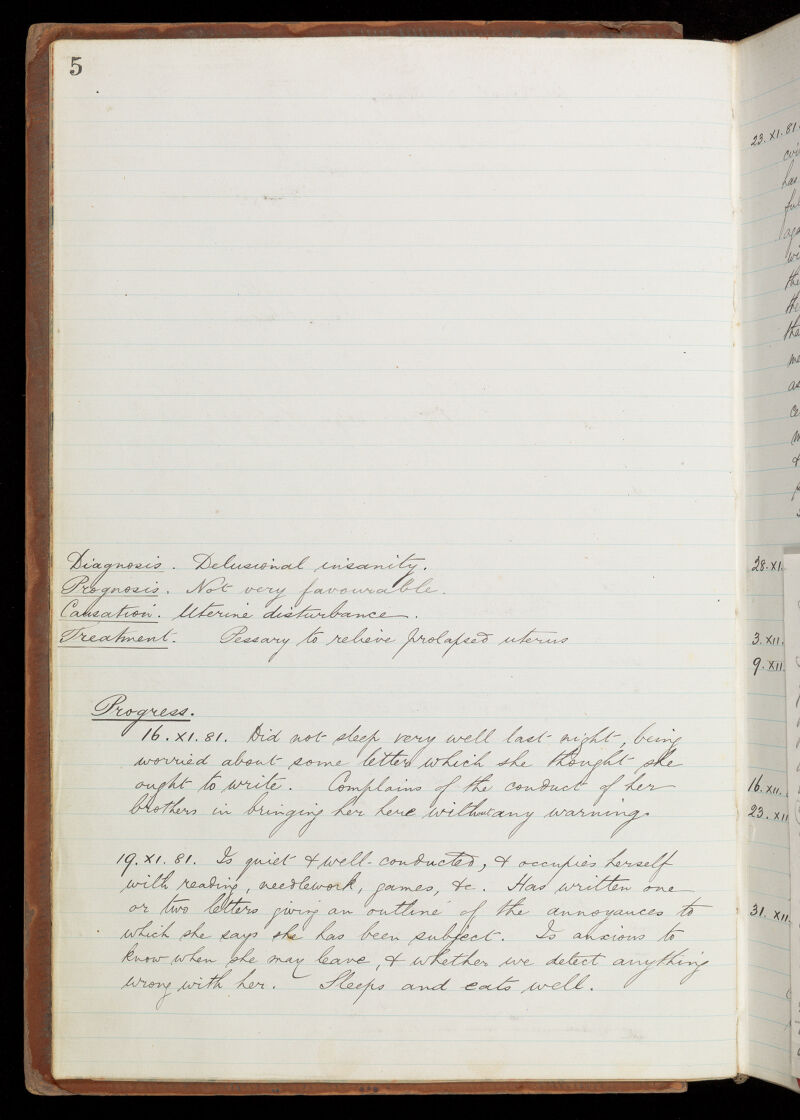 5
Diagnosis. Delusional insanity.
Prognosis. Not very favourable.
Causation. Uterine disturbance.
Treatment. Pessary to relieve prolapsed uterus
Progress.
16.XI.81. Did not sleep very well last night, being
worried about some letters which she thought she
ought to write. Complains of the conduct of her
brothers in bringing her here without any warning.
19.XI.81. Is quiet & well-conducted, & occupies herself
with reading, needlework, games, &c. Has written one
or two letters giving an outline of the annoyances to
which she says she has been subject. Is anxious to
know when she may leave, & whether we detect anything
wrong with her. Sleeps and eats well.
23.XI.81.
has
28.XI.
3.XII.
9.XII
16.XII.
23.XII
31.XII.